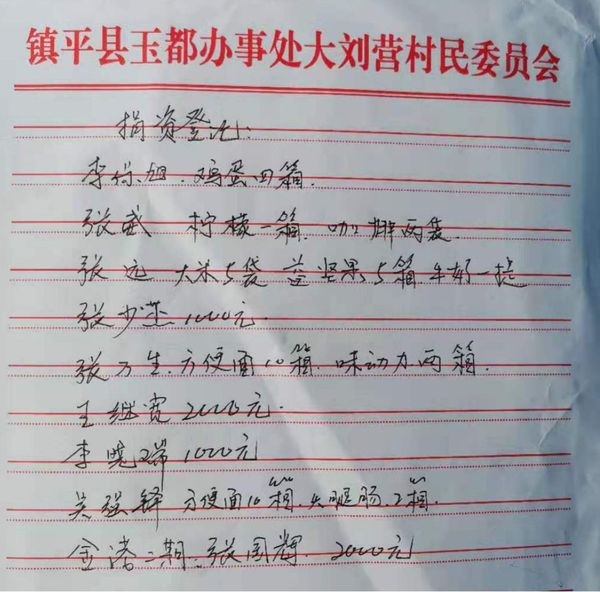 镇平县玉都办事处大刘营村民委员会
捐资登记:
李 旭. 鸡蛋四箱.
张武 柠檬一箱. 两袋
张远 大米5袋 坚果5箱 牛奶一提
张少 1000元.
张万生. 方便面10箱. 味动力两箱.
王继宽 2000元.
李晓瑞 1000元
吴强锋 方便面10箱. 火腿肠. 2箱.
金港二期. 张国辉. 2000元